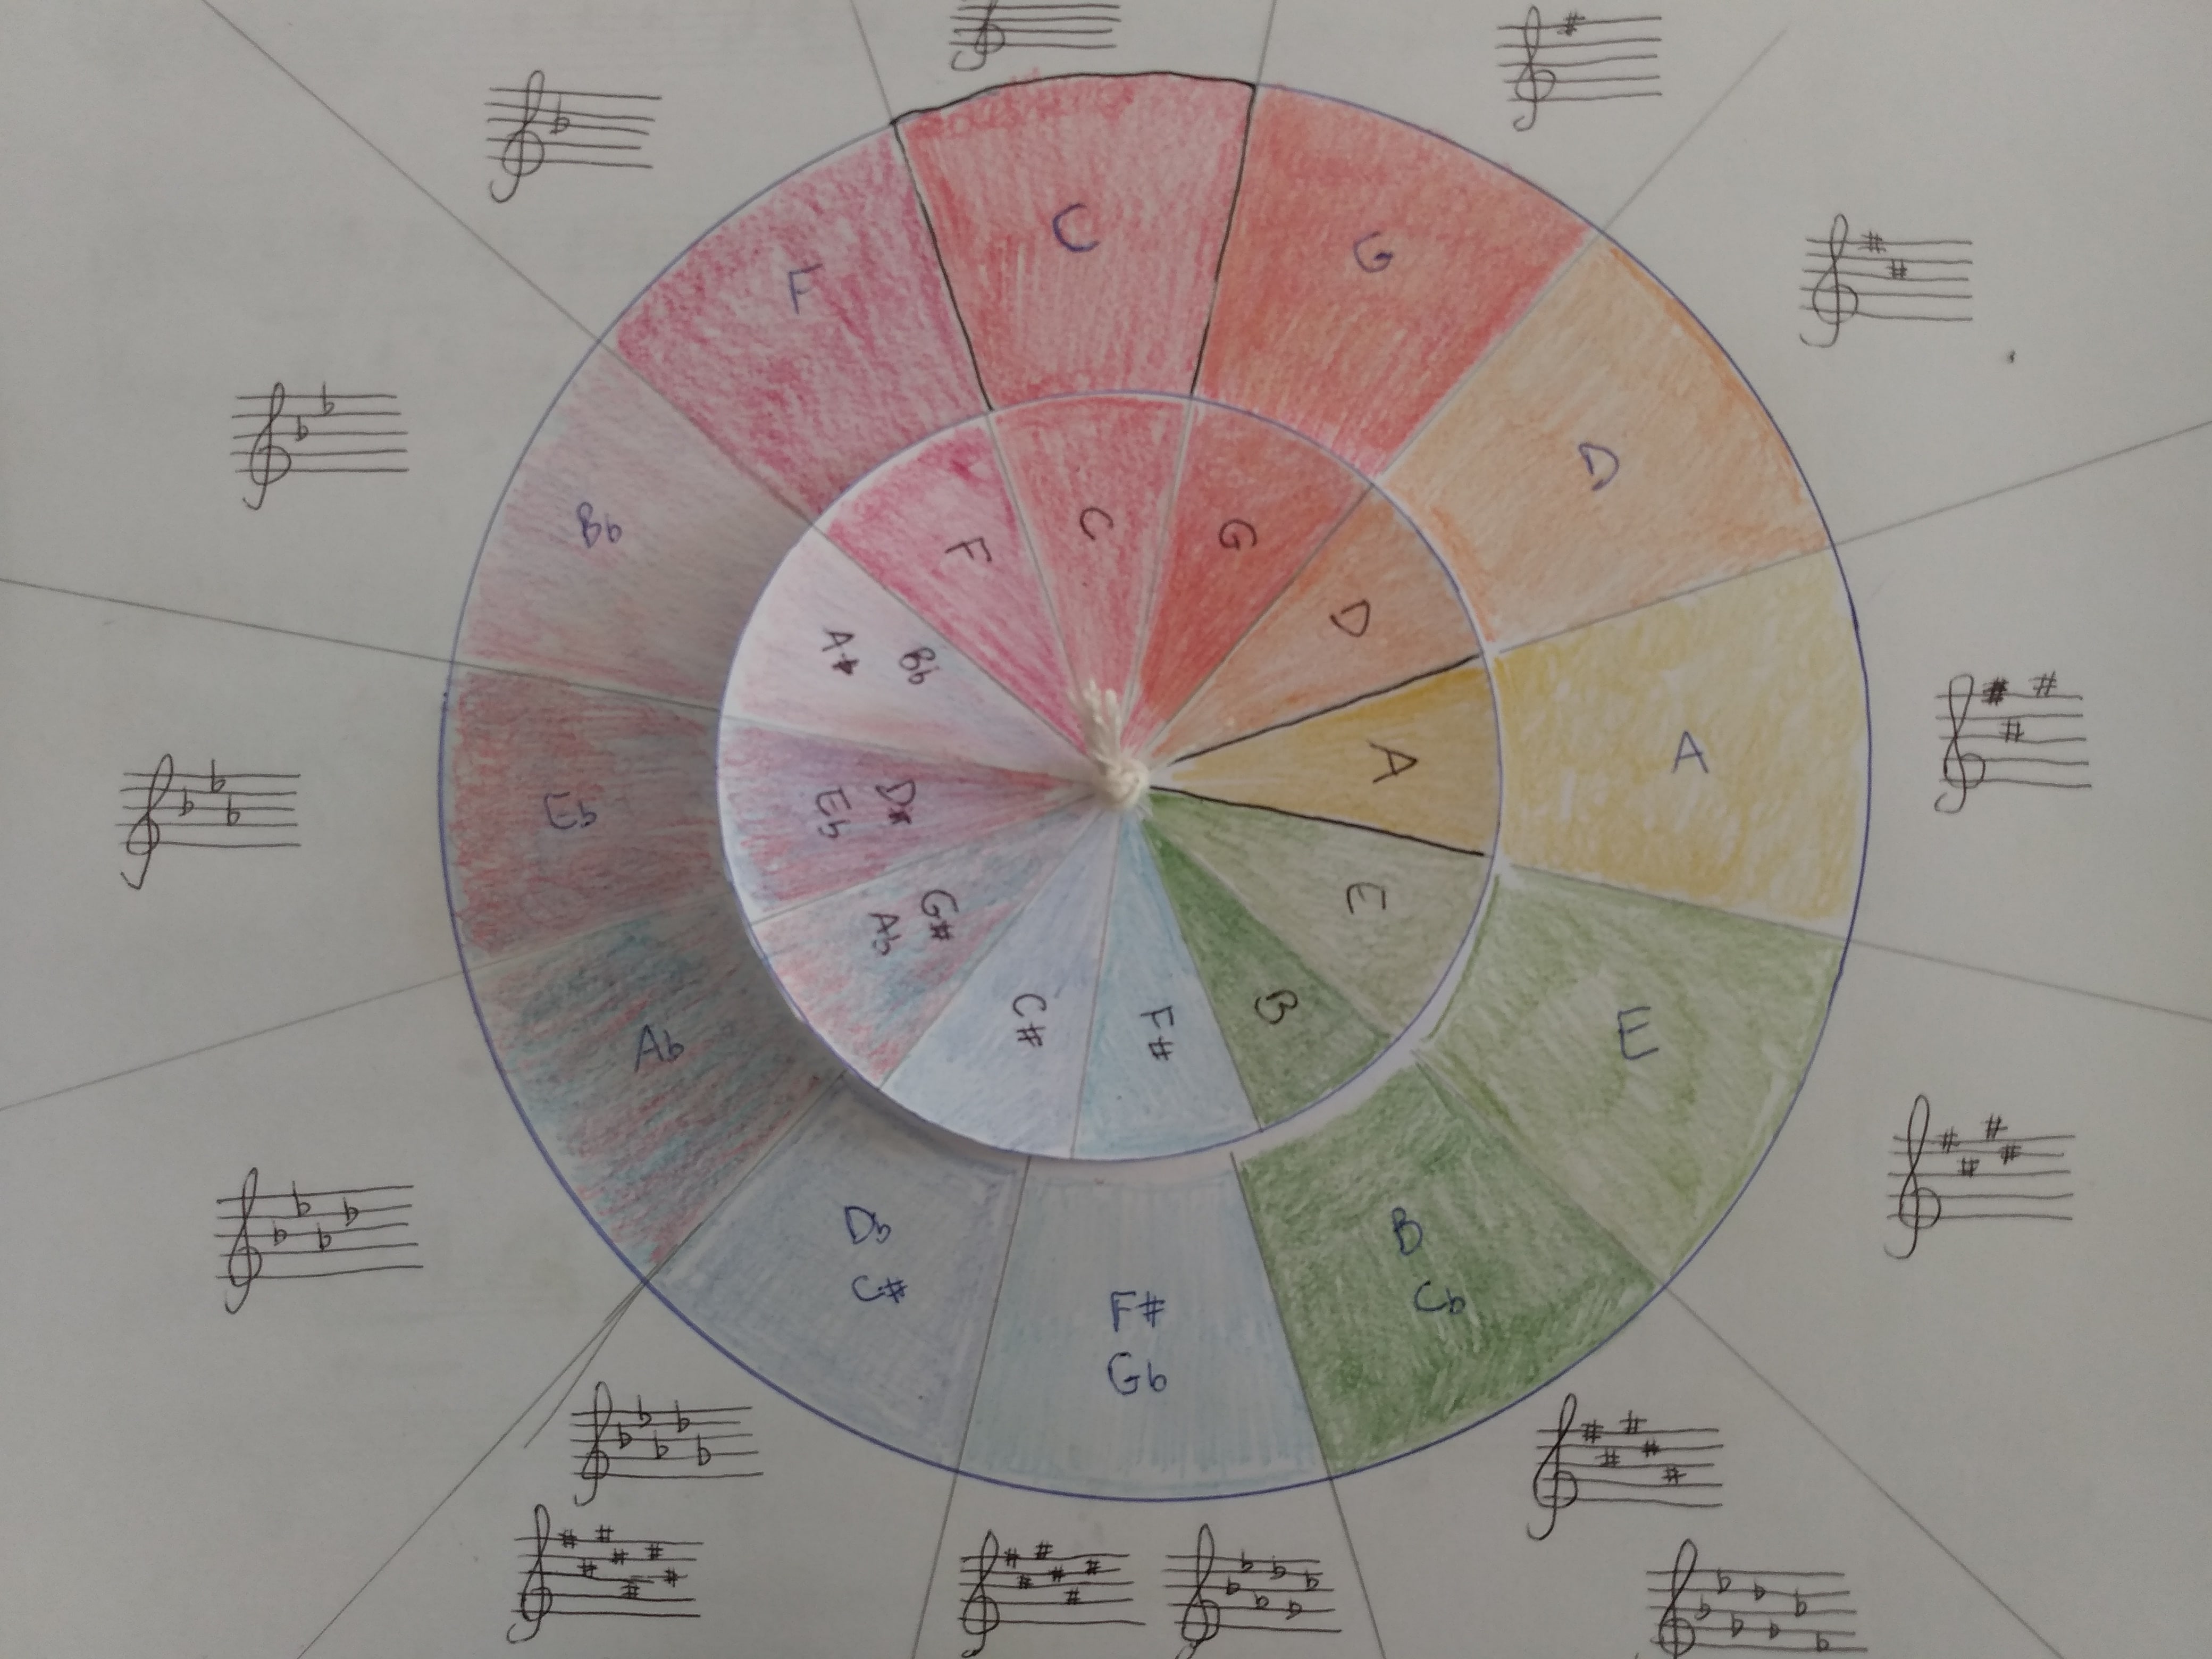 C
G
D
A
E
B
Cb
F#
Gb
Db
C#
Ab
Eb
Bb
F
C
G
D
A
E
B
F#
C#
G#
Ab
D#
Eb
A#
Bb
F